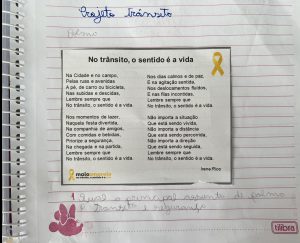 Projeto trânsito
Poema
No trânsito, o sentido é a vida
Na Cidade e no campo,
Pelas ruas e avenidas
A pé, de carro ou bicicleta,
Nas subidas e descidas,
Lembre sempre que
No trânsito, o sentido é a vida
Nos momentos de lazer,
Naquela festa divertida,
Na companhia de amigos,
Com comidas e bebidas,
Priorize a segurança,
Na chegada e na partida,
Lembre sempre que
No trânsito, o sentido é a vida
Nos dias calmos e de paz,
E na agitação sentida,
Nos deslocamentos fluidos,
E nas filas incontidas,
Lembre sempre que
No trânsito, o sentido é a vida
Não importa a situação
Que está sendo vivida,
Não importa a distância
Que está sendo percorrida,
Não importa a direção
Que está sendo seguida,
Lembre sempre que
No trânsito, o sentido é a vida
Irene Rico
maioamarelo
1 Qual o principal assunto do poema
R: Trânsito e segurança
tilibra